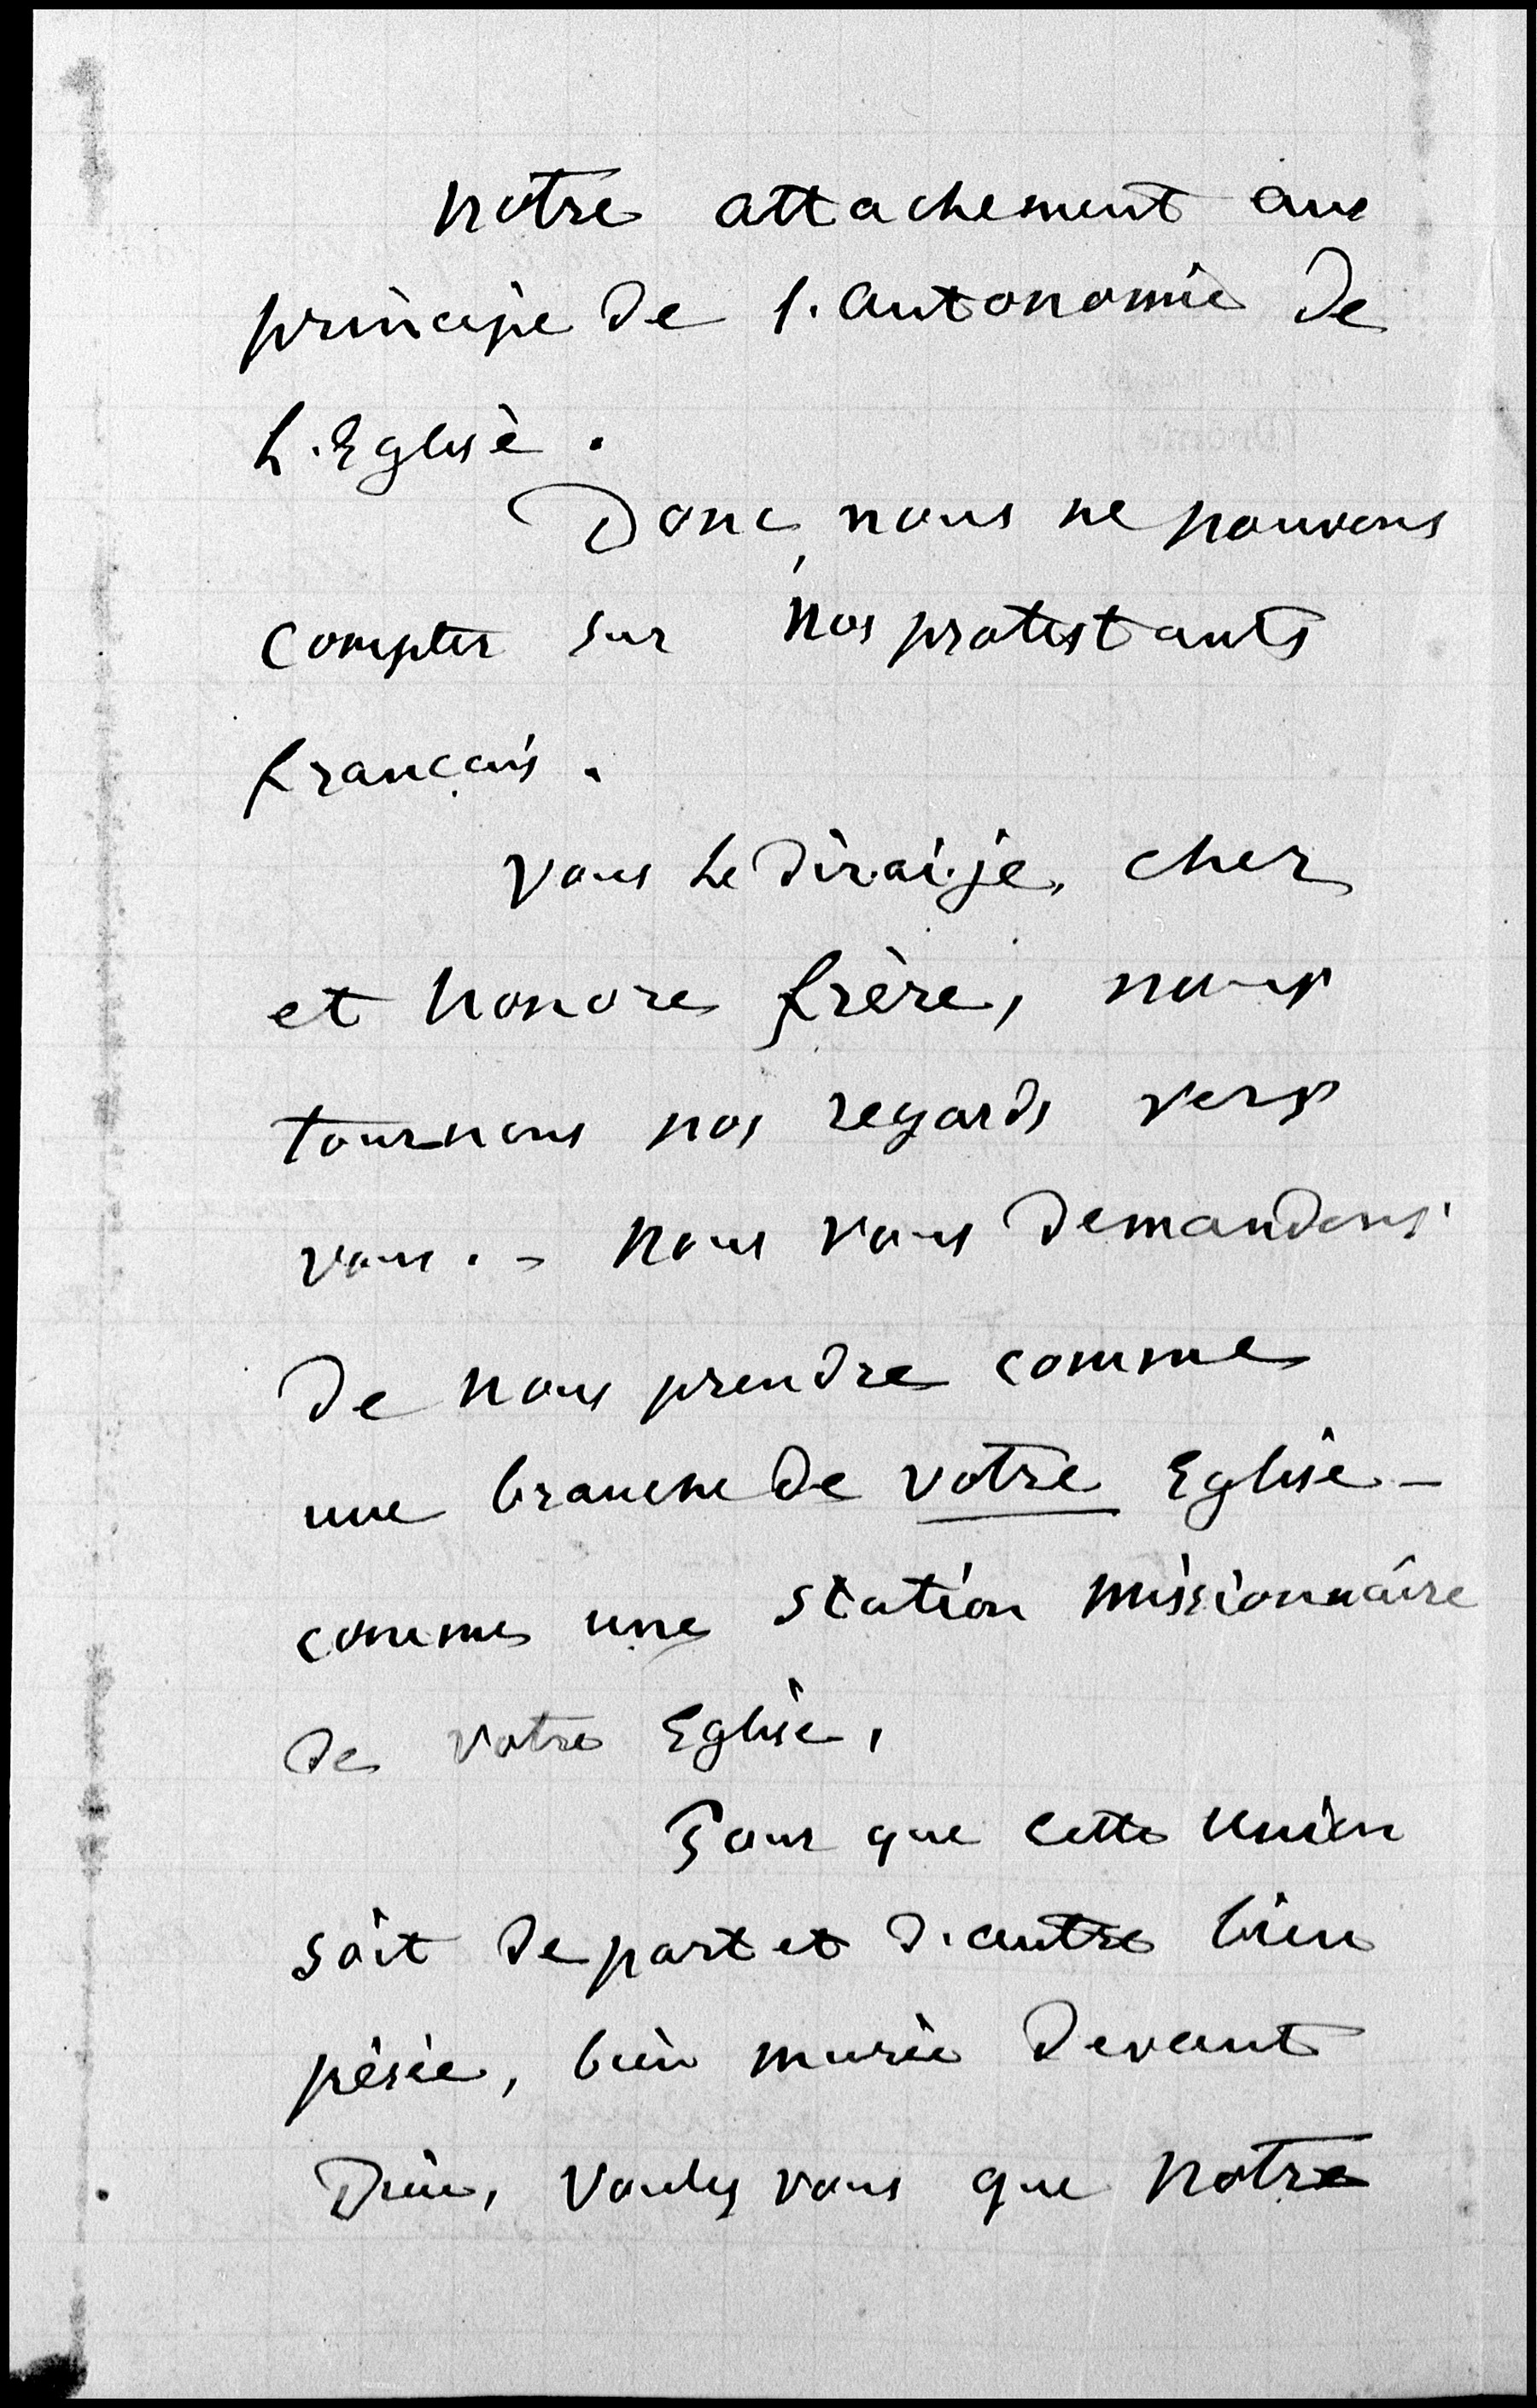 notre attachement au
principe de l'autonomie de
l'Eglise.
Donc, nous ne pouvons
compter sur nos protestants
français.
Vous le dirai-je, cher
et honore frère, nous
tournons nos regards vers
vous. - Nous vous demandons
de nous prendre comme
une branche de votre Eglise -
comme une station missionnaire
de votre Eglise,
Pour que cette union
soit de part et d'autre bien
pésée, bien murie devant
Dieu, voulez vous que notre